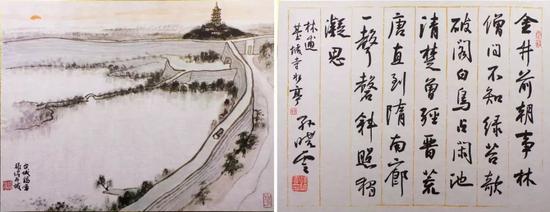 金井前朝事林
僧问不知绿苔欹
破阁白鸟占闲池
清楚曾经晋荒
唐直到隋南廊
一声磬斜照独
凝思
林逋
臺城寺水亭
孙晓云